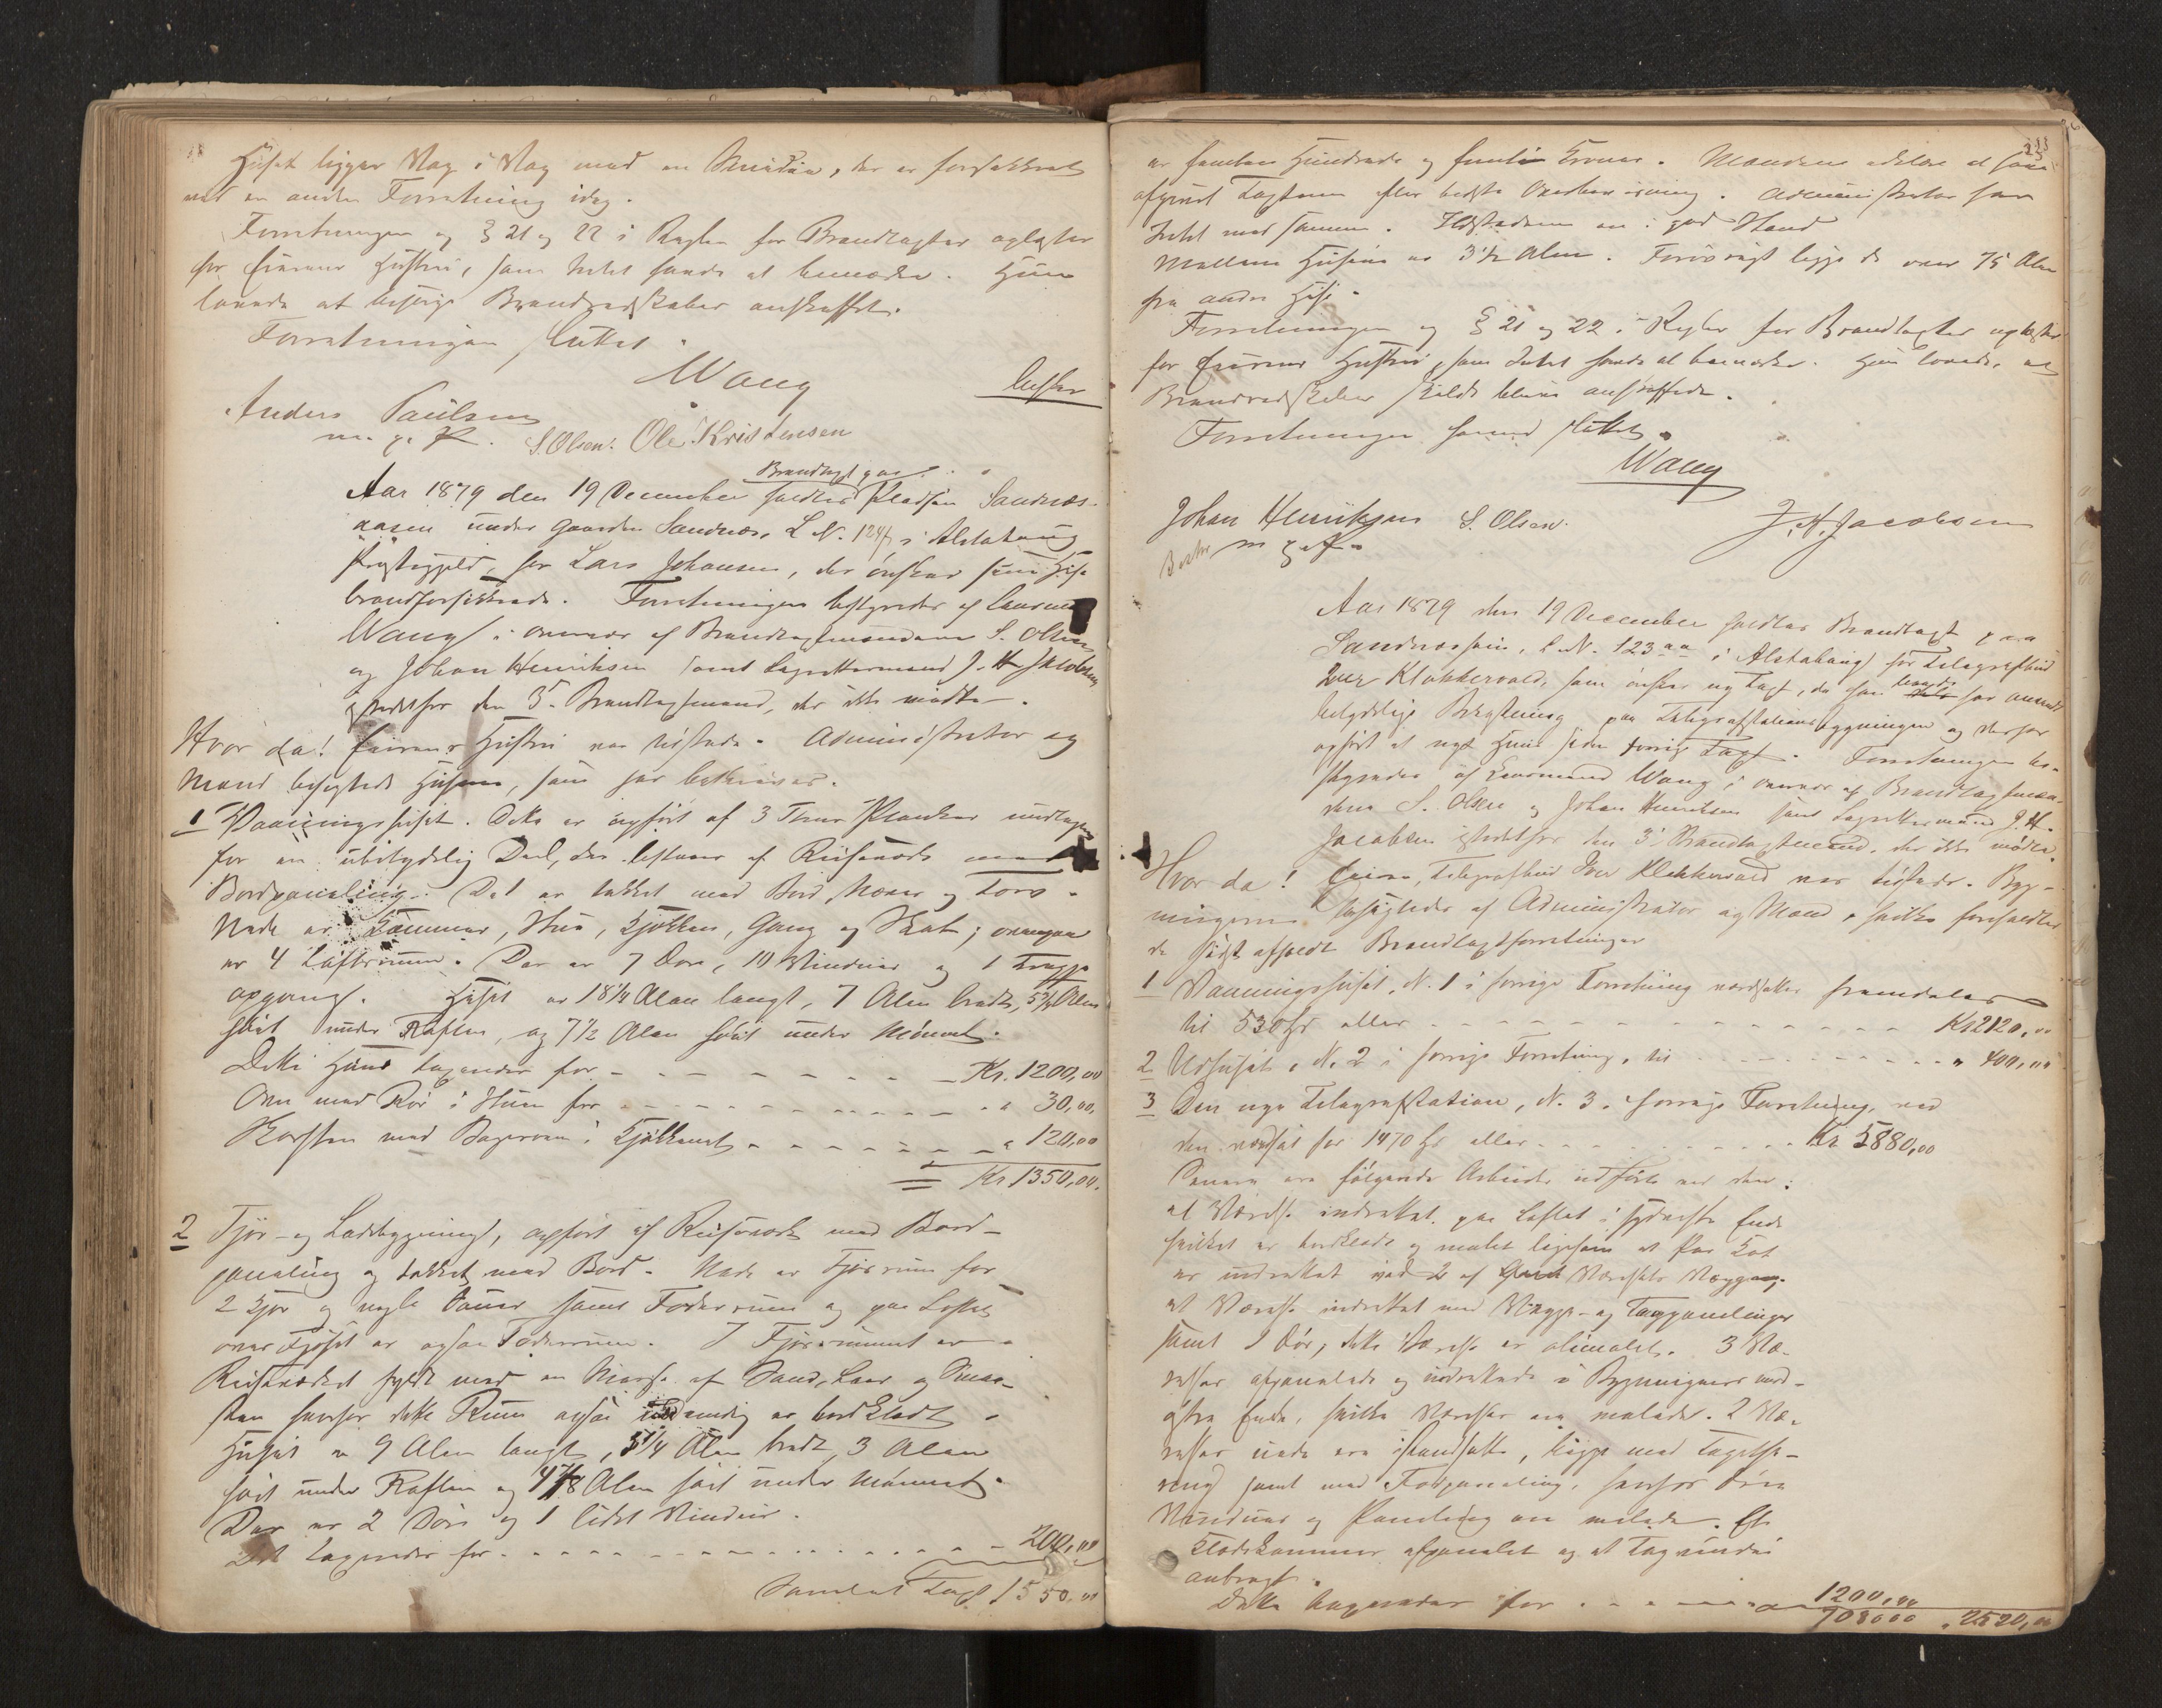 Huset ligger Væg i Væg med en Smidie, der er forsikkret
ved en anden Forretning idag.
Forretningen og § 21 og 22 i Regler for Brandtagter oplæstes
for Eierens Hustru, som Intet havde at bemærke. Hun
lovede at besørge Brandredskaber anskaffet.
Forretningen sluttet.
Wang
Anders Paulsen
m. p. P. S. Olsen. Ole Kristensen
Brandtaxt paa
Aar 1879 den 19 December holdtes Pladsen Sandnæs-
aasen under Gaarden Sandnæs, L.N. 124 i Alstahaug
Præstegjeld, for Lars Johansen, der ønsker sine Huse
brandforsikrede. Forretningen bestyredes af Lensmand
Wang i Overvær af Brandtagtmændene S. Olsen
og Johan Henriksen samt Lagrettemand J. H. Jacobsen
istedetfor den 3die Brandtagtmand, der ikke mødte.
Hvor da! Eierens Hustru var tilstede. Administrator og
Mænd besigtede Husene, som her beskrives.
1 Vaaningshuset. Dette er opført af 3 Toms Planker undtagen
for en ubetydelig Deel, der bestaar af Reisværk med
Bordpaneling. Det er tækket med Bord, Næver og Torv.
Nede er Kammer, Stue, Kjøkken, Gang og Skab; ovenpaa
er 4 Loftsrum. Der er 7 Døre, 10 Vinduer og 1 Trappe
opgang. Huset er 18¼ Alen langt, 7 Alen bredt, 5¾ Alen
høit under Raften, og 7½ Alen høit under Mønnet.
Dette Huus taxeredes for - - - Kr. 1200,00
Ovn med Rør i Stuen for - - - " 30,00
Skorsten med Bagerovn i Kjøkkenet - - - " 120,00
Kr. 1350,00.
2 Fjøs- og Ladebygning, opført af Reisværk med Bord-
paneling og tækket med Bord. Nede er Fjøsrum for
2 Kjør og nogle Sauer samt Foderrum og paa Loftet
over Fjøset er ogsaa Foderrum. I Fjøsrummet er
Reisværket fyldt med en Masse af Sand, Leer og Smaa-
sten hvorfor dette Rum ogsaa indvendig er bordklædt.
Huset er 9 Alen langt, 5¼ Alen bredt, 3 Alen
høit under Raften og 4⅞ Alen høit under Mønnet.
Der er 2 Døre og 1 lidet Vindue.
Det taxeredes for - - - 200,00
Samlet Taxt 1550,00
er femten Hundrede og femti Kroner. Mændene erklære at have
afgivet Taxten efter bedste Overbevisning. Administrator har
Intet mod samme. Ildstederne er i god Stand
Mellem Husene er 3½ Alen. Forøvrigt ligge de over 75 Alen
fra andre Huse.
Forretningen og § 21 og 22 i Regler for Brandtagter oplæstes
for Eierens Hustru, som Intet havde at bemærke. Hun lovede, at
Brandredskaber skulde blive anskaffede.
Forretningen hermed sluttet.
Wang
Johan Henriksen S. Olsen. J. H. Jacobsen
m. p. P.
Aar 1879 den 19 December holdtes Brandtaxt paa
Sandnessøen, L.N. 123 aa i Alstahaug for Telegrafbud
Iver Klokkervold, som ønsker ny Taxt, da han har anvendt
betydelig Bekostning paa Telegrafstationsbygningen og derfor
opført et nyt Huus siden forrige Taxt. Forretningen be-
styredes af Lensmand Wang i Overvær af Brandtagtmæn-
dene S. Olsen og Johan Henriksen samt Lagrettemand J. H.
Jacobsen istedetfor den 3die Brandtagtmand, der ikke mødte.
Hvor da! Eieren, Telegrafbud Iver Klokkervold var tilstede. Byg-
ningerne besigtedes af Administrator og Mænd, hvilke foreholdtes
de sidst afholdt Brandtagtforretninger
1 Vaaningshuset, N. 1 i forrige Forretning værdsættes fremdeles
til 530 Spd eller - - - Kr 2120,00
2 Udhuset, N. 2 i forrige Forretning, til - - - " 400,00
3 Den nye Telegrafstation, N. 3 i forrige Forretning, ved
den værdsat for 1470 Spd eller - - - Kr. 5880,00
Senere ere følgende Arbeider udført ved den:
et Værelse indrettet paa Loftet i sydvestre Ende
hvilket er bordklædt og malet ligesom et Par Kot
er indrettet ved 2 af Værelsets Vægge.
et Værelse indrettet med Vægge- og Tagpanelinger
samt 1 Dør, dette Værelse er olimalet. 3 Væ-
relser afpanelede og indrettede i Bygningens nord-
østre Ende, hvilke Værelser ere malede. 2 Væ-
relser nede ere istandsatte, begge med
samt med Fodpaneling, hvorfor Døre
Vinduer og Paneling ere malede. Et
Klædekammer afpanelet og et Tagvindue
anbragt.
Dette taxeredes for - - - 1200,00
7080,00 " 2520,00